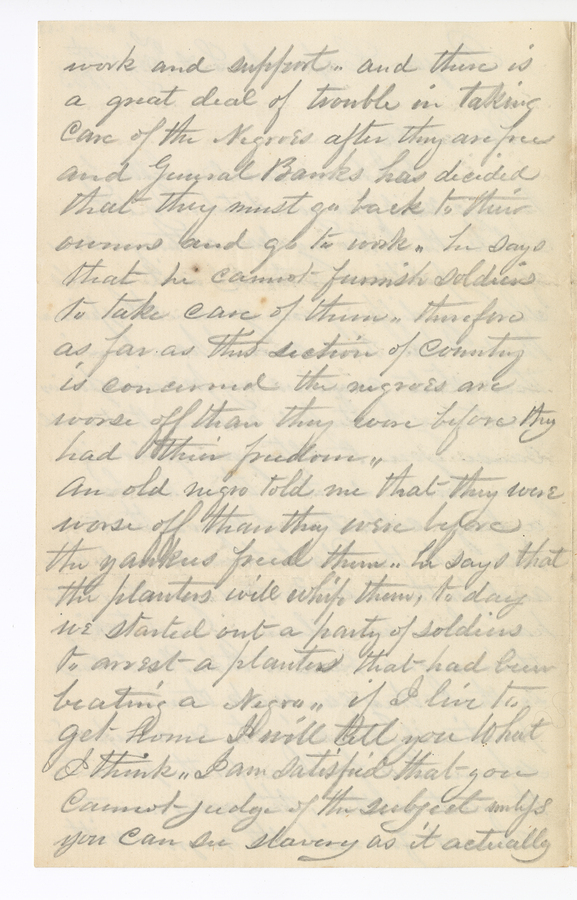 work and support.. and there is
a great deal of trouble in taking
Care of the Negroes after they are free
and General Banks has decided
that they must go back to their
owners and go to work.. he says
that he cannot furnish soldiers
to take care of them.. therefore
as far as this section of Country
is concerned the negroes are
worse off than they were before they
had their freedom..
An old negro told me that they were
worse off than they were before
the yankees freed them.. he says that
the planters will whip them, to day
we started out a party of soldiers
to arrest a planter that had been
beating a Negro.. if I live to
get home I will tell you What
I think.. I am satisfied that you
Cannot judge of the subject unless
you can see slavery as it actually